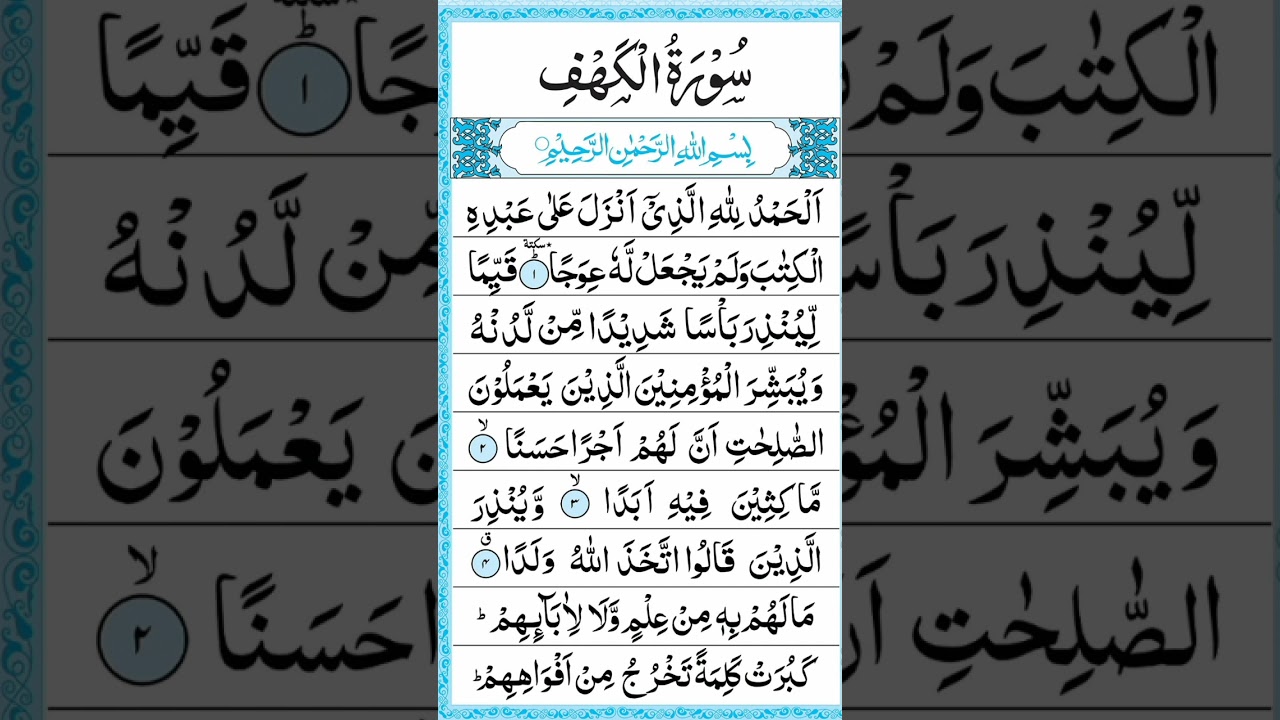 سُوْرَةُ الْكَهْفِ
بِسْمِ اللّٰهِ الرَّحْمٰنِ الرَّحِيْمِ
اَلْحَمْدُ لِلّٰهِ الَّذِىْٓ اَنْزَلَ عَلٰى عَبْدِهِ
الْكِتٰبَ وَلَمْ يَجْعَلْ لَّهٗ عِوَجًا ؕ ۱ *سكتة قَيِّمًا
لِّيُنْذِرَ بَاْسًا شَدِيْدًا مِّنْ لَّدُنْهُ
وَيُبَشِّرَ الْمُؤْمِنِيْنَ الَّذِيْنَ يَعْمَلُوْنَ
الصّٰلِحٰتِ اَنَّ لَهُمْ اَجْرًا حَسَنًا ۙ ۲
مَّاكِثِيْنَ فِيْهِ اَبَدًا ۙ ۳ وَّيُنْذِرَ
الَّذِيْنَ قَالُوا اتَّخَذَ اللّٰهُ وَلَدًا ق ۴
مَا لَهُمْ بِهٖ مِنْ عِلْمٍ وَّلَا لِاٰبَآئِهِمْ ؕ
كَبُرَتْ كَلِمَةً تَخْرُجُ مِنْ اَفْوَاهِهِمْ ؕ